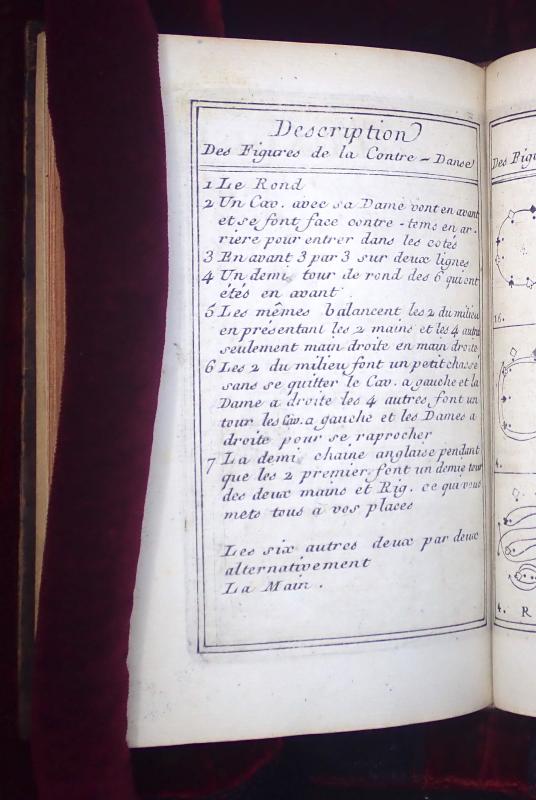 Description
Des Figures de la Contre-Danse
1 Le Rond
2 Un Cav. avec sa Dame vont en avant
et se font face contre-tems en ar-
riere pour entrer dans les cotés
3 En avant 3 par 3 sur deux lignes
4 Un demi tour de rond des 6 qui ont
étés en avant.
5 Les mêmes balancent les 2 du milieu
en présentant les 2 mains et les 4 autres
seulement main droite en main droite
6 Les 2 du milieu font un petit chassé
sans se quitter le Cav. a gauche et la
Dame a droite les 4 autres font un
tour les Cav. a gauche et les Dames a
droite pour se raprocher
7 La demi chaine anglaise pendant
que les 2 premier font un demie tour
des deux mains et Rig. ce qui vous
mets tous a vos places
Les six autres deux par deux
alternativement
La Main.
Des Figu
16.
4.
4. R